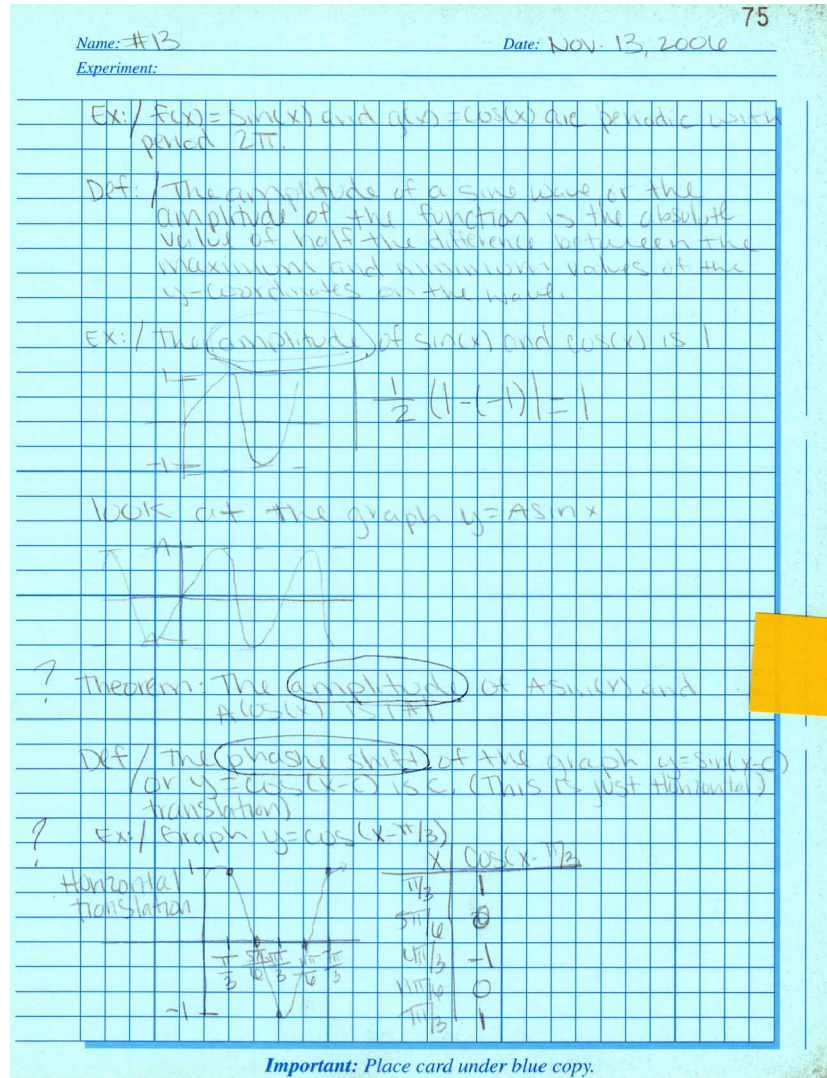 75
Name: #13 Date: Nov. 13, 2006
Experiment:
Ex:/ f(x) = sin(x) and g(x) = cos(x) are periodic with
period 2π.
Def:/ The amplitude of a sine wave or the
amplitude of the function is the absolute
value of half the difference between the
maximum and minimum values of the
y-coordinates on the wave.
Ex:/ The amplitude of sin(x) and cos(x) is 1
1
-1
1/2 (1-(-1)| = 1
look at the graph y=Asinx
A
? Theorem: The amplitude of Asin(x) and
Acos(x) is |A|
Def/ The phashe shift of the graph y=sin(x-c)
or y=cos(x-c) is c. (This is just Horizontal)
translation)
? Ex:/ Graph y=cos(x-π/3)
Horizontal
translation
1
-1
π/3 5π/6 4π/3 11π/6 7π/3
x cos(x-π/3
π/3 1
5π/6 0
4π/3 -1
11π/6 0
7π/3 1
Important: Place card under blue copy.